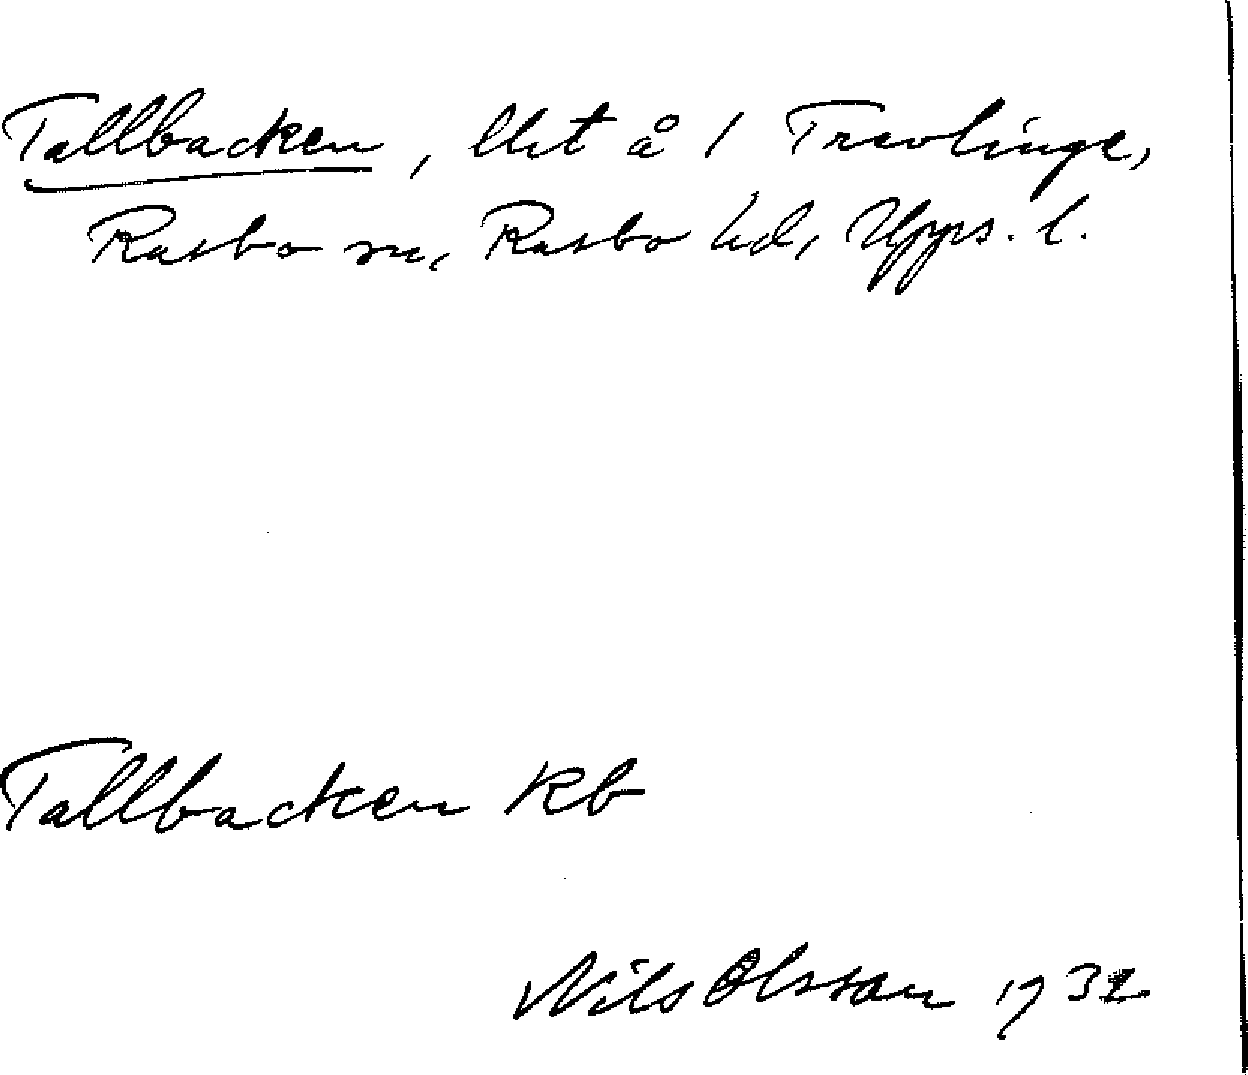 Tallbacken, lht å 1 Trevlinge,
Rasbo sn, Rasbo hd, Upps. l.
Tallbacken Kb
Nils Olsson 1932